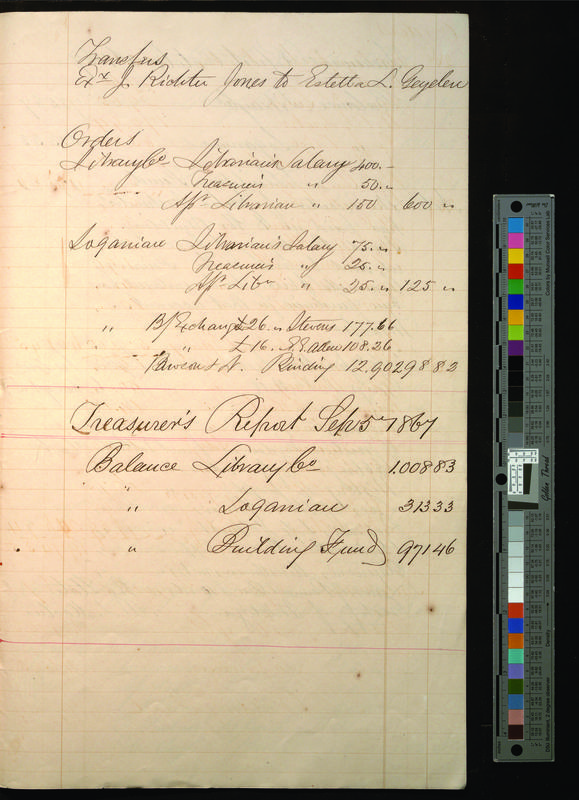 Transfers
Ex J. Richter Jones to Estella L. Geyelen
Orders
Library Co Librarian's Salary 400.–
Treasurer's " 50.„
Asst Librarian " 150 600 „
Loganian Librarian's Salary 75.„
Treasurer's " 25.„
Asst Libn " 25.„ 125 „
" B/Exchange £26.„ Stevens 177.66
" £16. 108.26
Binding 12.90 298 82
Treasurer's Report Sep 5 1867
Balance Library Co 1.008 83
" Loganian 313 33
" Building Fund 971 46